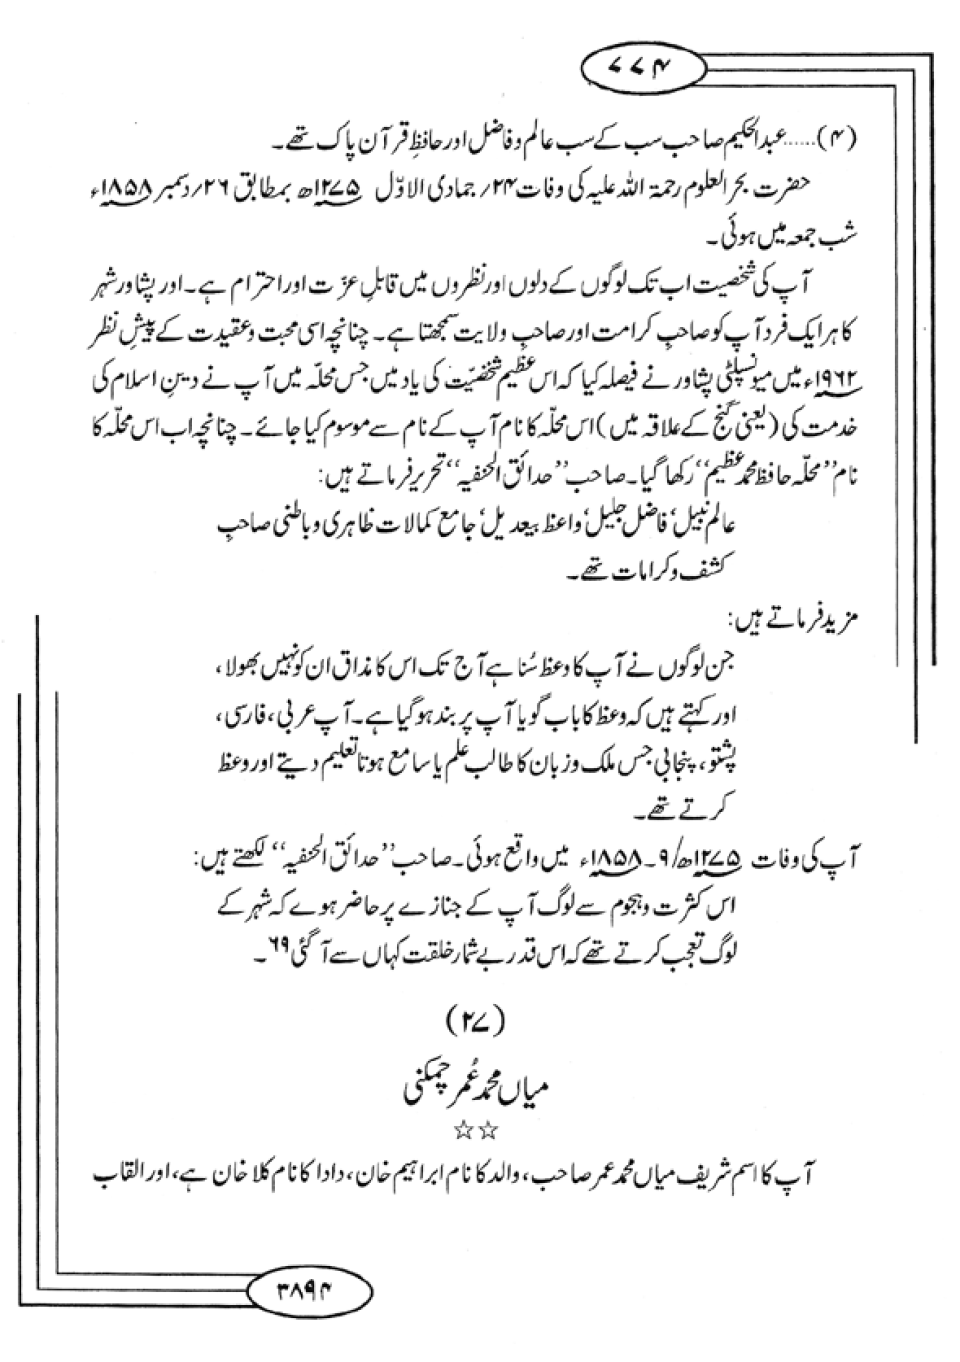 ۷۷۴
(۴)......عبدالحکیم صاحب سب کے سب عالم و فاضل اور حافظِ قرآن پاک تھے۔
حضرت بحر العلوم رحمۃ اللہ علیہ کی وفات ۲۴/ جمادی الاوّل ۱۲۷۵ھ بمطابق ۲۶/ دسمبر ۱۸۵۸ء
شب جمعہ میں ہوئی۔
آپ کی شخصیت اب تک لوگوں کے دلوں اور نظروں میں قابلِ عزّت اور احترام ہے۔ اور پشاور شہر
کا ہر ایک فرد آپ کو صاحبِ کرامت اور صاحبِ ولایت سمجھتا ہے۔ چنانچہ اسی محبت و عقیدت کے پیشِ نظر
۱۹۶۲ء میں میونسپلٹی پشاور نے فیصلہ کیا کہ اس عظیم شخصیّت کی یاد میں جس محلہ میں آپ نے دینِ اسلام کی
خدمت کی (یعنی گنج کے علاقہ میں) اس محلّہ کا نام آپ کے نام سے موسوم کیا جائے۔ چنانچہ اب اس محلّہ کا
نام ’’محلّہ حافظ محمد عظیم‘‘ رکھا گیا۔ صاحب ’’حدائق الحنفیہ‘‘ تحریر فرماتے ہیں:
عالم نبیل‘ فاضل جلیل‘ واعظ بیعدیل‘ جامع کمالات ظاہری و باطنی صاحبِ
کشف و کرامات تھے۔
مزید فرماتے ہیں:
جن لوگوں نے آپ کا وعظ سُنا ہے آج تک اس کا مذاق ان کو نہیں بھولا،
اور کہتے ہیں کہ وعظ کا باب گویا آپ پر بند ہو گیا ہے۔ آپ عربی، فارسی،
پشتو، پنجابی جس ملک و زبان کا طالب علم یا سامع ہوتا تعلیم دیتے اور وعظ
کرتے تھے۔
آپ کی وفات ۱۲۷۵ھ/۹۔۱۸۵۸ء میں واقع ہوئی۔ صاحب ’’حدائق الحنفیہ‘‘ لکھتے ہیں:
اس کثرت و ہجوم سے لوگ آپ کے جنازے پر حاضر ہوے کہ شہر کے
لوگ تعجب کرتے تھے کہ اس قدر بے شمار خلقت کہاں سے آ گئی ۶۹۔
(۲۷)
میاں محمد عُمر چمکنی
☆☆
آپ کا اسم شریف میاں محمد عمر صاحب، والد کا نام ابراہیم خان، دادا کا نام کلا خان ہے، اور القاب
۳۸۹۴